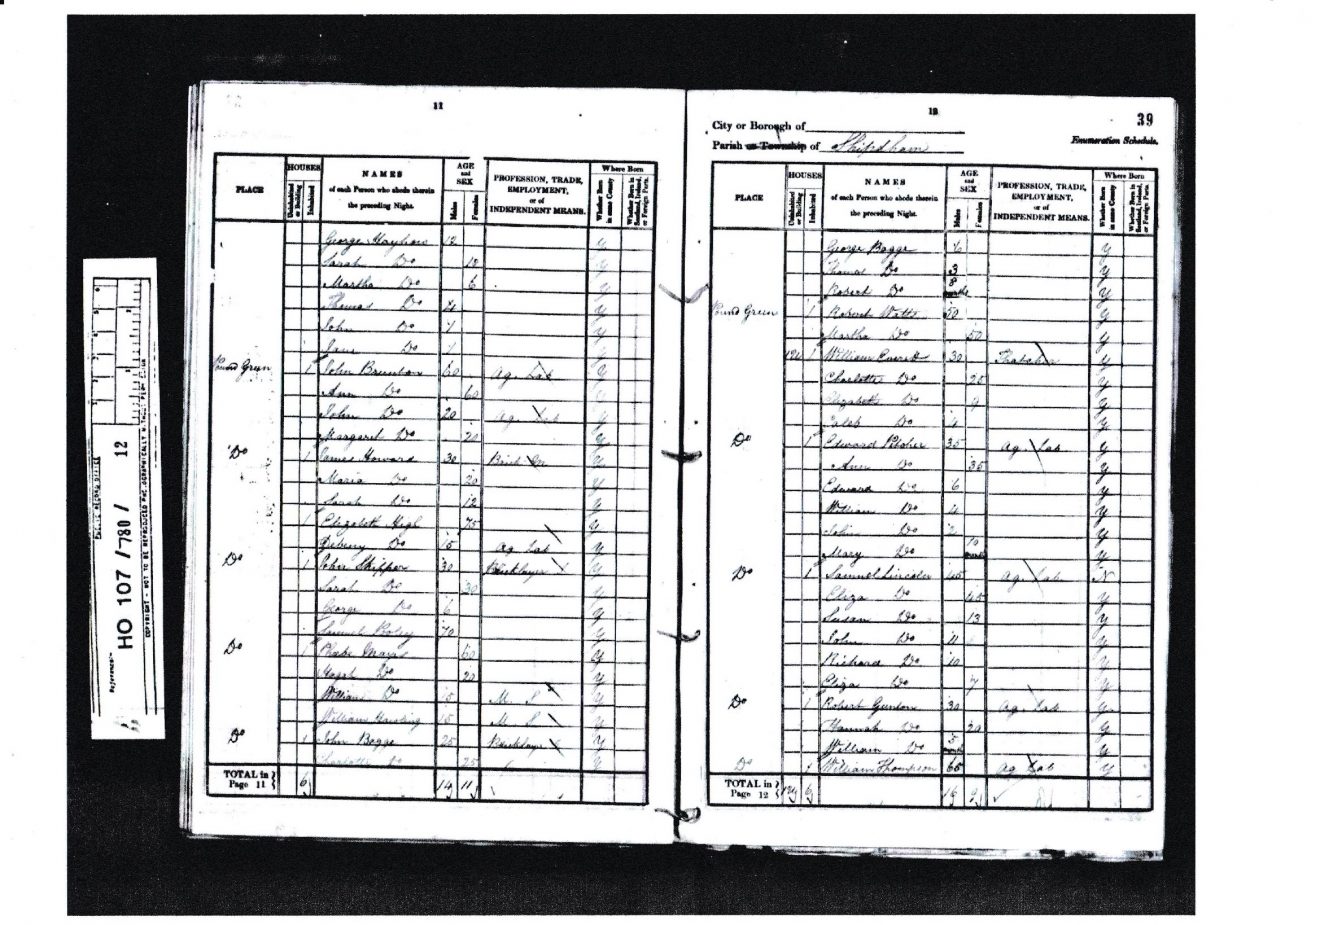 11
HOUSES
NAMES
AGE and SEX
PROFESSION, TRADE, EMPLOYMENT, or of INDEPENDENT MEANS.
Where Born
PLACE
Uninhabited or Building
Inhabited
of each Person who abode therein the preceding Night.
Males
Females
Whether Born in same County
Whether Born in Scotland, Ireland, or Foreign Parts.
George 12 Y
Sarah Do 12 Y
Martha Do 6 Y
Thomas Do Y
John Do 7 Y
Jane Do Y
Pound Green 1 John Brunton 60 Ag. Lab Y
Ann Do 60 Y
John Do 20 Ag. Lab Y
Margaret Do 20 Y
Do 1 James Howard 30 Y
Maria Do 20 Y
Sarah Do 12 Y
1 Elizabeth High 75 Y
Do 15 Ag. Lab Y
Do 1 John Skipper 30 Bricklayer Y
Sarah Do 30 Y
George Do 6 Y
Samuel 70 Y
Do 1 60 Y
Do 20 Y
William Do 15 M. S Y
William 15 M. S Y
Do 1 John Bagge 25 Bricklayer Y
Charlotte Do 25 Y
TOTAL in Page 11 6 14 11
12
39
City or Borough of
Parish or Township of Shipdham
Enumeration Schedule.
HOUSES
NAMES
AGE and SEX
PROFESSION, TRADE, EMPLOYMENT, or of INDEPENDENT MEANS.
Where Born
PLACE
Uninhabited or Building
Inhabited
of each Person who abode therein the preceding Night.
Males
Females
Whether Born in same County
Whether Born in Scotland, Ireland, or Foreign Parts.
George Bagge 6 Y
Thomas Do 3 Y
Robert Do 8 months Y
Pound Green 1 Robert Watts 50 Y
Martha Do 50 Y
1 William Everett 30 Thatcher Y
Charlotte Do 25 Y
Elizabeth Do 9 Y
Caleb Do 4 Y
Do 1 Edward Pitcher 35 Ag. Lab Y
Ann Do 35 Y
Edward Do 6 Y
William Do 4 Y
John Do 2 Y
Mary Do 10 months Y
Do 1 Samuel Lincoln 45 Ag. Lab N
Eliza Do 45 Y
Susan Do 13 Y
John Do 11 Y
Richard Do 10 Y
Eliza Do 7 Y
Do 1 Robert Gunton 30 Ag. Lab Y
Hannah Do 20 Y
William Do 5 months Y
Do 1 William Thompson 65 Ag. Lab Y
TOTAL in Page 12 6 16 9
PUBLIC RECORD OFFICE
Reference:-
HO 107 / 780 / 12
COPYRIGHT - NOT TO BE REPRODUCED PHOTOGRAPHICALLY WITHOUT PERMISSION